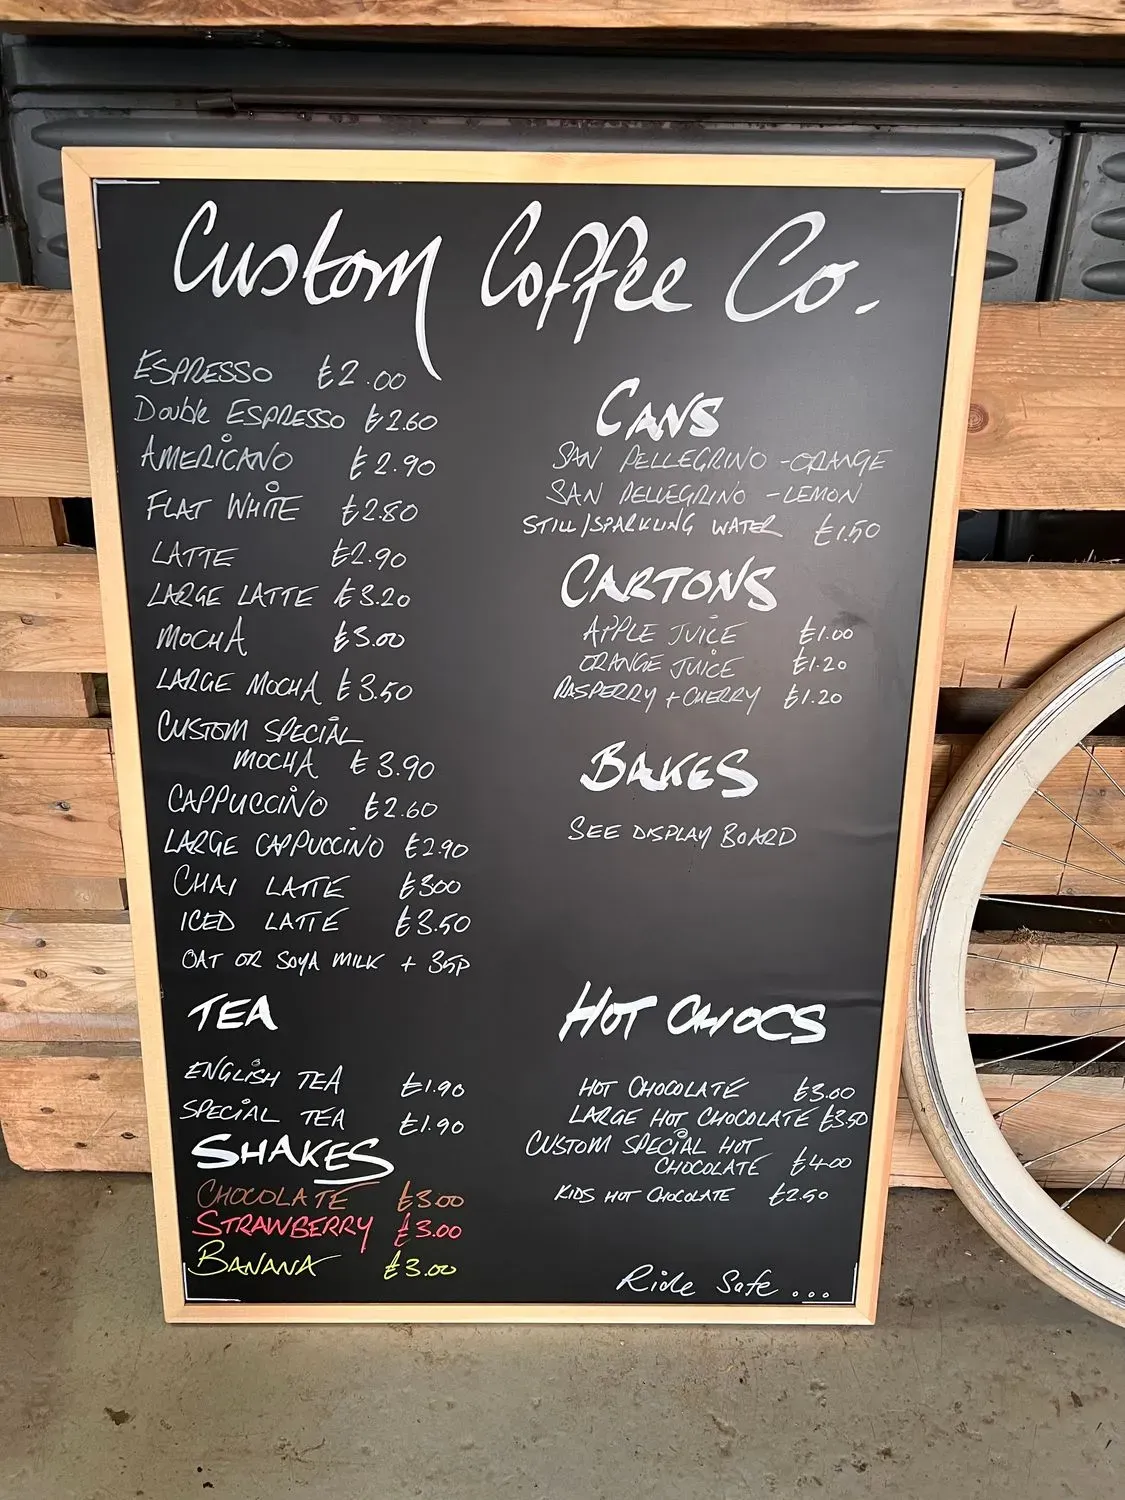 Custom Coffee Co.
ESPRESSO £2.00
Double ESPRESSO £2.60
AMERICANO £2.90
FLAT WHITE £2.80
LATTE £2.90
LARGE LATTE £3.20
MOCHA £3.00
LARGE MOCHA £3.50
CUSTOM SPECIAL
MOCHA £3.90
CAPPUCCINO £2.60
LARGE CAPPUCCINO £2.90
CHAI LATTE £300
ICED LATTE £3.50
OAT OR SOYA MILK + 35P
TEA
ENGLISH TEA £1.90
SPECIAL TEA £1.90
SHAKES
CHOCOLATE £3.00
STRAWBERRY £3.00
BANANA £3.00
CANS
SAN PELLEGRINO -ORANGE
SAN PELLEGRINO -LEMON
STILL/SPARKLING WATER £1.50
CARTONS
APPLE JUICE £1.00
ORANGE JUICE £1.20
RASPBERRY + CHERRY £1.20
BAKES
SEE DISPLAY BOARD
HOT CHOCS
HOT CHOCOLATE £3.00
LARGE HOT CHOCOLATE £3.50
CUSTOM SPECIAL HOT
CHOCOLATE £4.00
KIDS HOT CHOCOLATE £2.50
Ride Safe ...